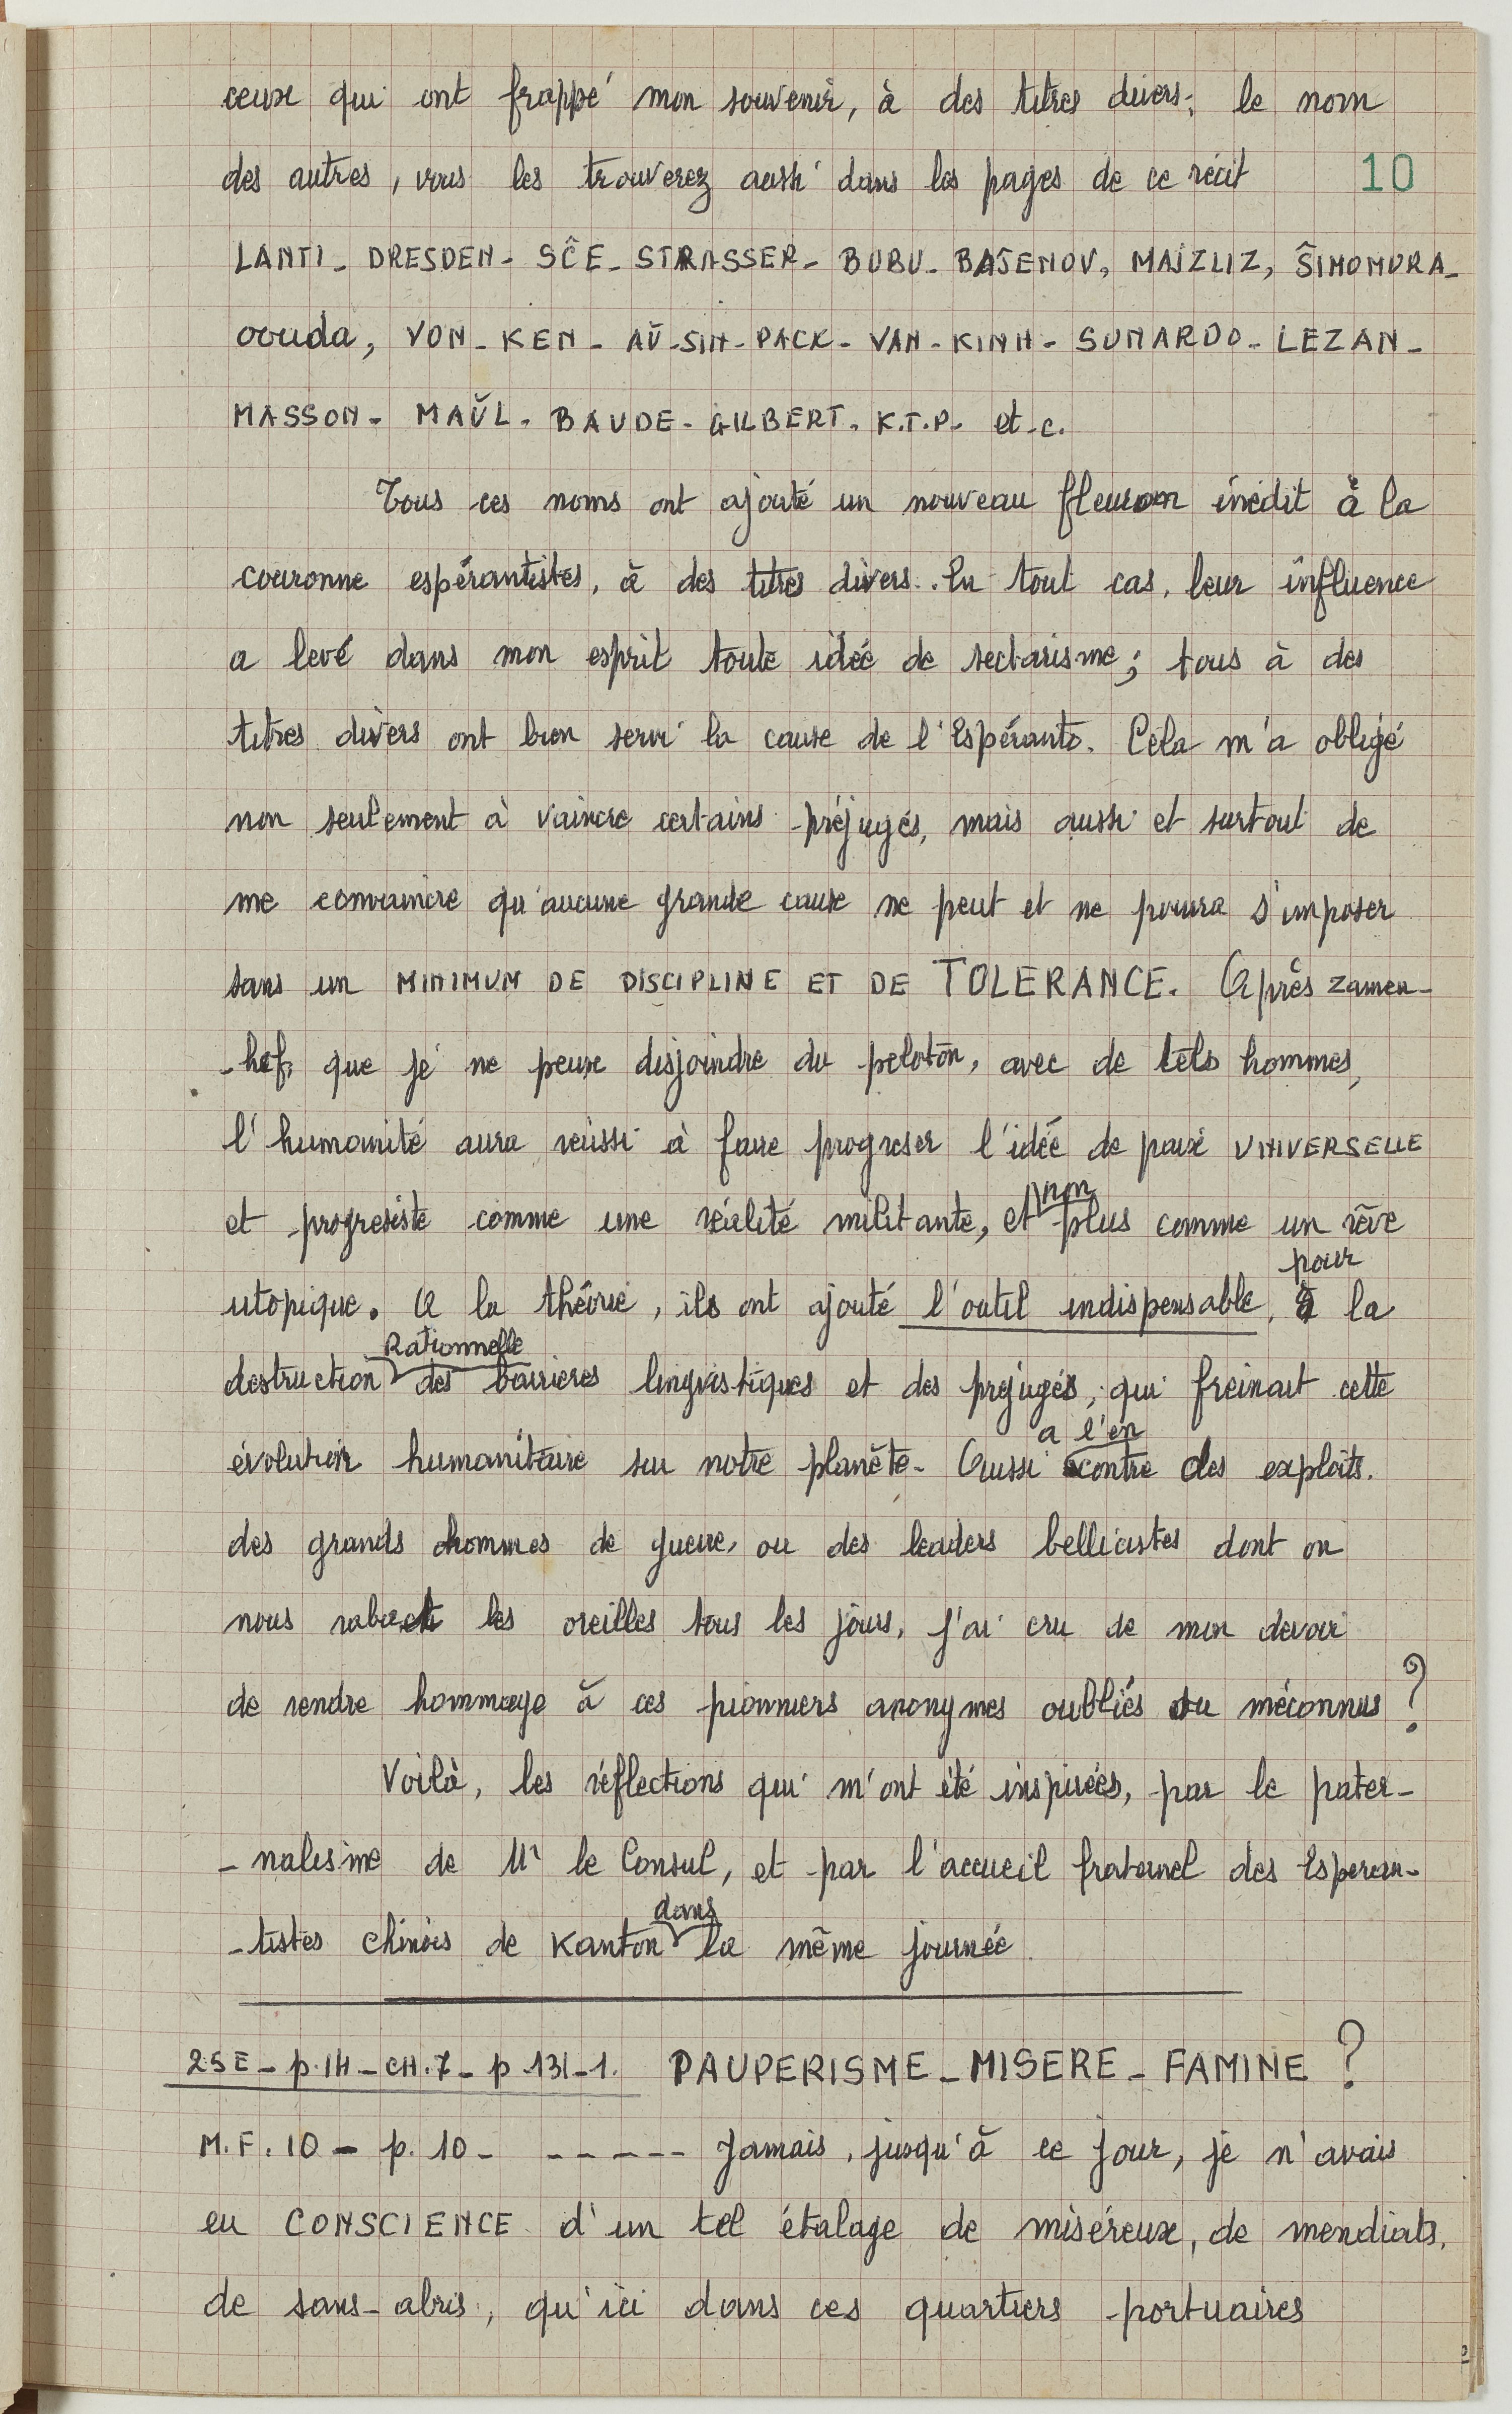 ceux qui ont frappé mon souvenir, à des titres divers; le nom
des autres, vous les trouverez aussi dans les pages de ce récit 10
LANTI_ DRESDEN- SĈE_ STRASSER_ BUBU_ BAJENOV, MAÏZLIZ, ŜIMOMURA_
oouda, VON_ KEN_ AŬ-SIN-PACK- VAN-KINH- SUNARDO_ LEZAN_
MASSON_ MAŬL. BAUDE-GILBERT. K.T.P. et.c.
Tous ces noms ont ajouté un nouveau fleuron inédit à la
couronne espérantistes, à des titres divers. En tout cas, leur influence
a levé dans mon esprit toute idée de sectarisme; tous à des
titres divers ont bien servi la cause de l'Espéranto. Cela m'a obligé
non seulement à vaincre certains préjugés, mais aussi et surtout de
me convaincre qu'aucune grande cause ne peut et ne pourra s'imposer
sans un MINIMUM DE DISCIPLINE ET DE TOLERANCE. Après zamen_
_hof, que je ne peux disjoindre du peloton, avec de tels hommes,
l'humanité aura réussi à faire progreser l'idée de paix UNIVERSELLE
et progresiste comme une réalité militante, et non plus comme un rêve
utopique. A la théorie, ils ont ajouté l'outil indispensable, pour la
destruction Rationnelle des barrieres linguistiques et des préjugés, qui freinait cette
évolution humanitaire sur notre planète. Aussi a l'en contre des exploits.
des grands hommes de guerre, ou des leaders bellicistes dont on
nous rabat les oreilles tous les jours, j'ai cru de mon devoir
de rendre hommage à ces pionniers anonymes oubliés ou méconnus ?
Voilà, les réflections qui m'ont été inspirées, par le pater_
_nalisme de Mr le Consul, et par l'accueil fraternel des Esperan_
_tistes chinois de Kanton dans la même journée.
2.S E_ p. IH_ CH. 7_ p. 131_1. PAUPERISME_MISERE_FAMINE ?
M.F. 10 - p. 10_ _ _ _ _ _ Jamais, jusqu'à ce jour, je n'avais
eu CONSCIENCE d'un tel étalage de miséreux, de mendiats,
de sans-abris, qu'ici dans ces quartiers portuaires